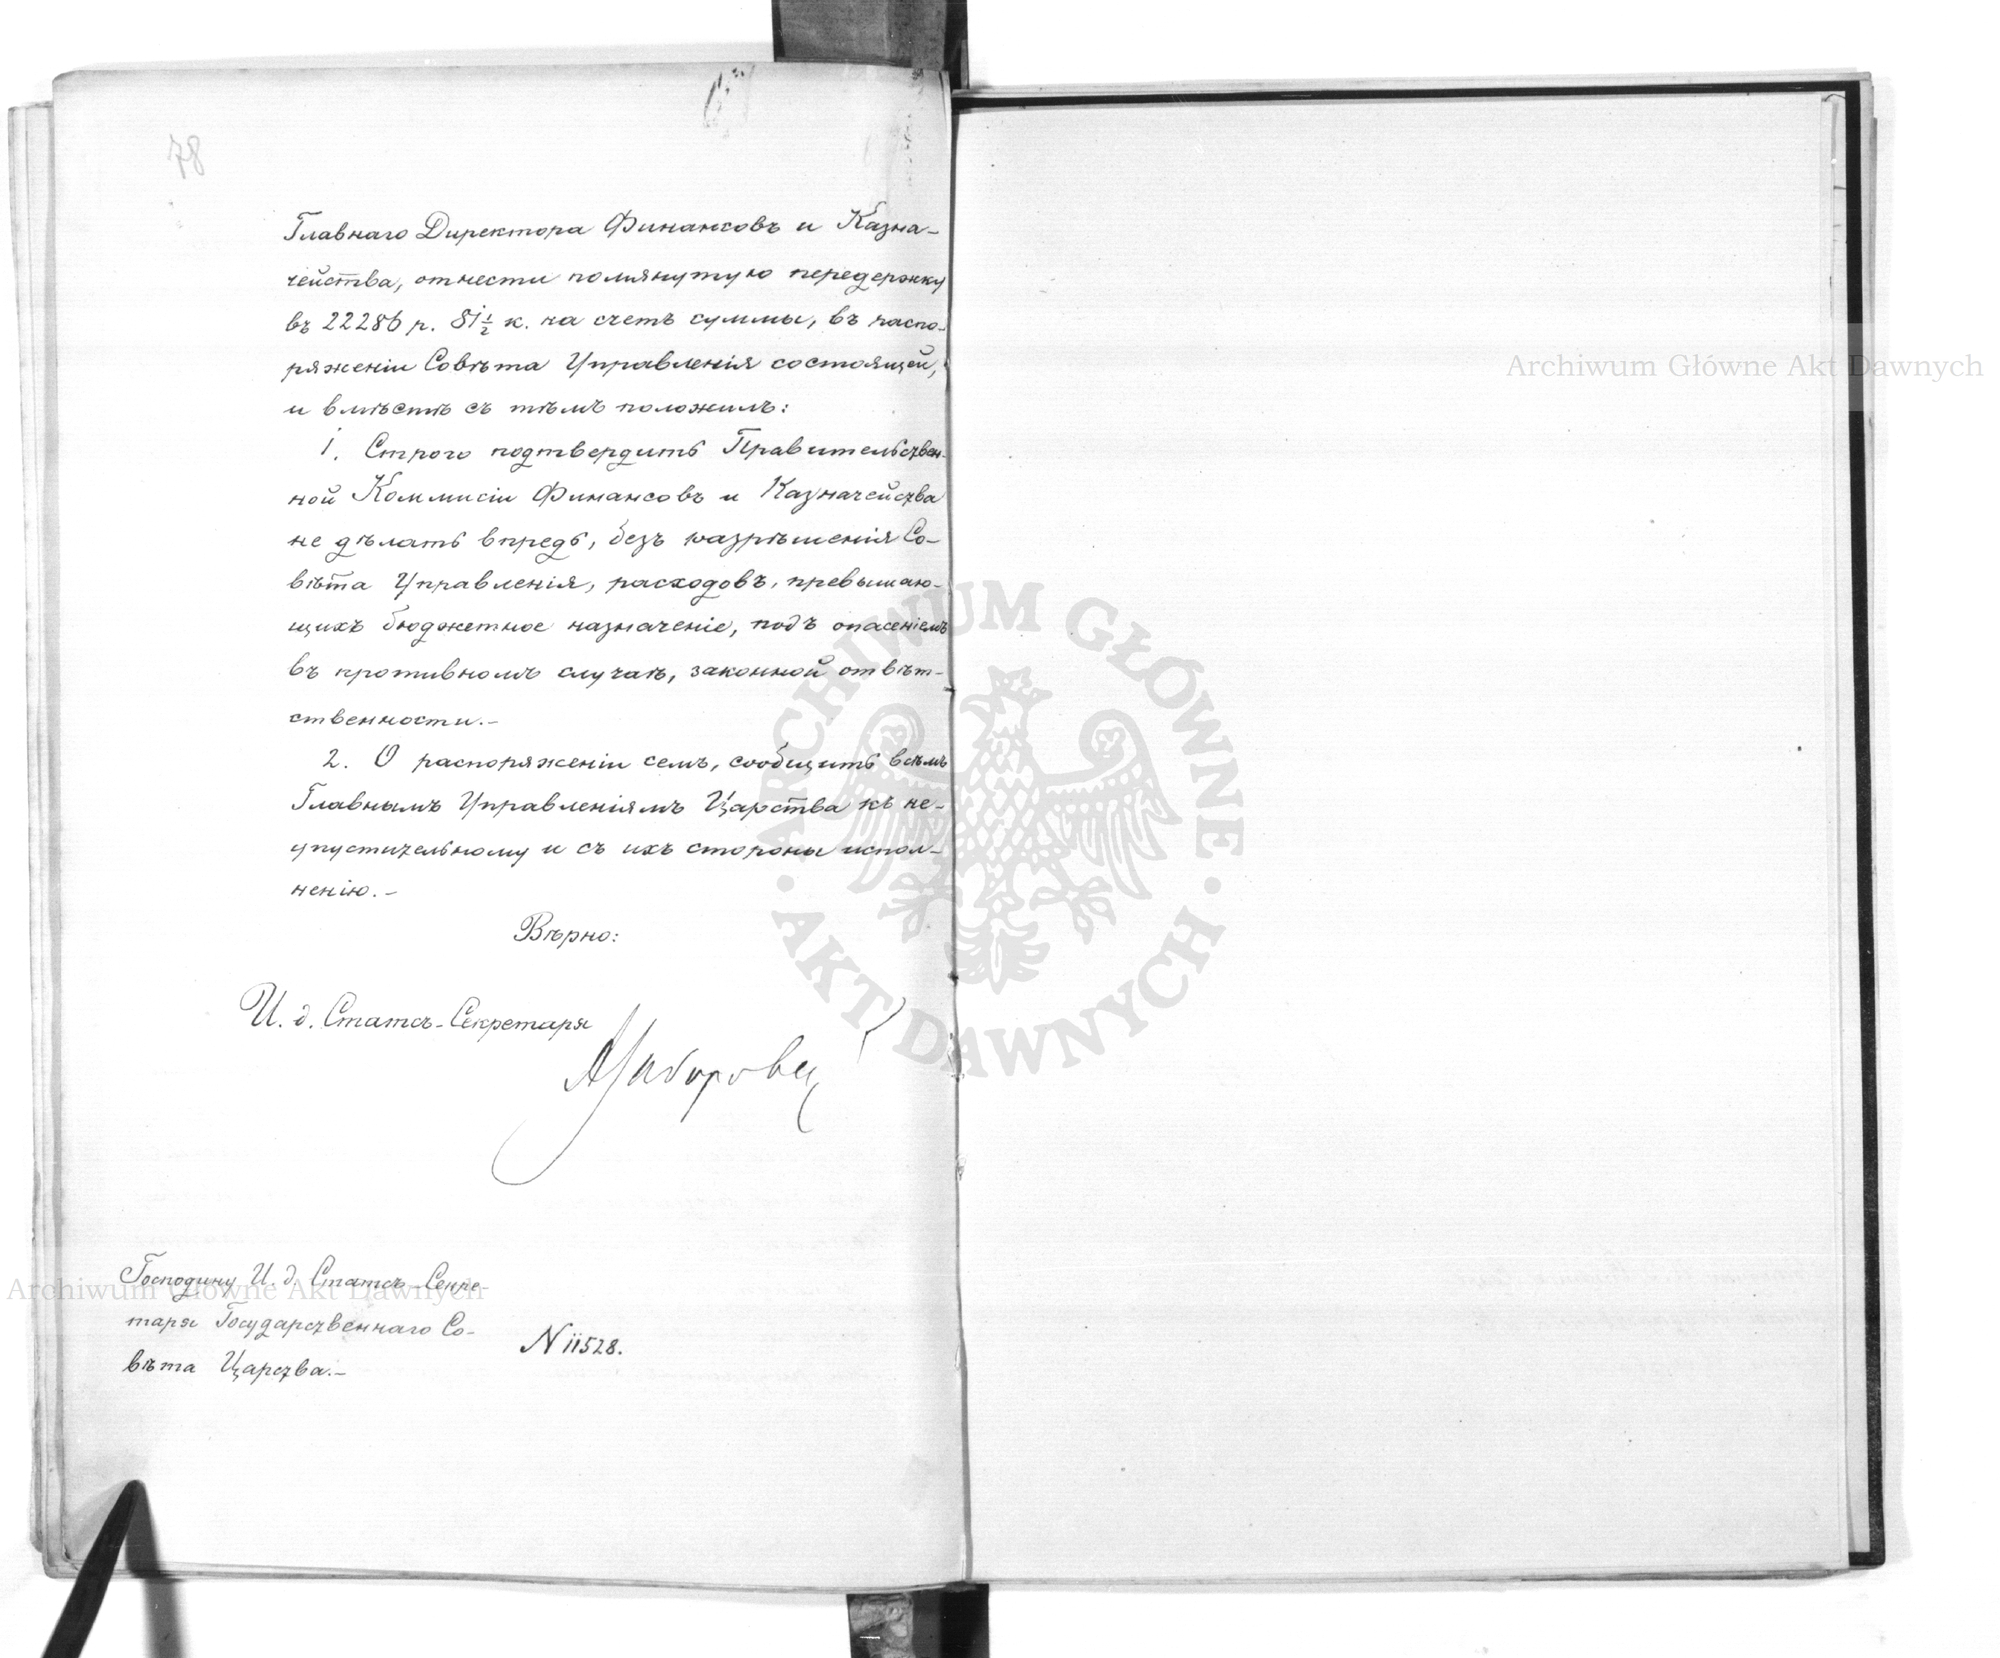 78
Главнаго Директора Финансовъ и Казна-
чейства, отнести помянутую передержку
въ 22286 р. 81½ к. на счетъ суммы, въ распо-
ряженіи Совѣта Управленія состоящей,
и вмѣстѣ съ тѣмъ положилъ:
1. Строго подтвердить Правительствен-
ной Коммисіи Финансовъ и Казначейства
не дѣлать впредь, безъ разрѣшенія Со-
вѣта Управленія, расходовъ, превышаю-
щихъ бюджетное назначеніе, подъ опасеніемъ
въ противномъ случаѣ, законной отвѣт-
ственности.-
2. О распоряженіи семъ, сообщить всѣмъ
Главнымъ Управленіямъ Царства къ не-
упустительному и съ ихъ стороны испол-
ненію.-
Вѣрно:
И. д. Статсъ-Секретаря
Господину И. д. Статсъ-Секре-
таря Государственнаго Со-
вѣта Царства.-
N 11528.
Archiwum Główne Akt Dawnych
Archiwum Główne Akt Dawnych
ARCHIWUM GŁÓWNE
· AKT DAWNYCH ·